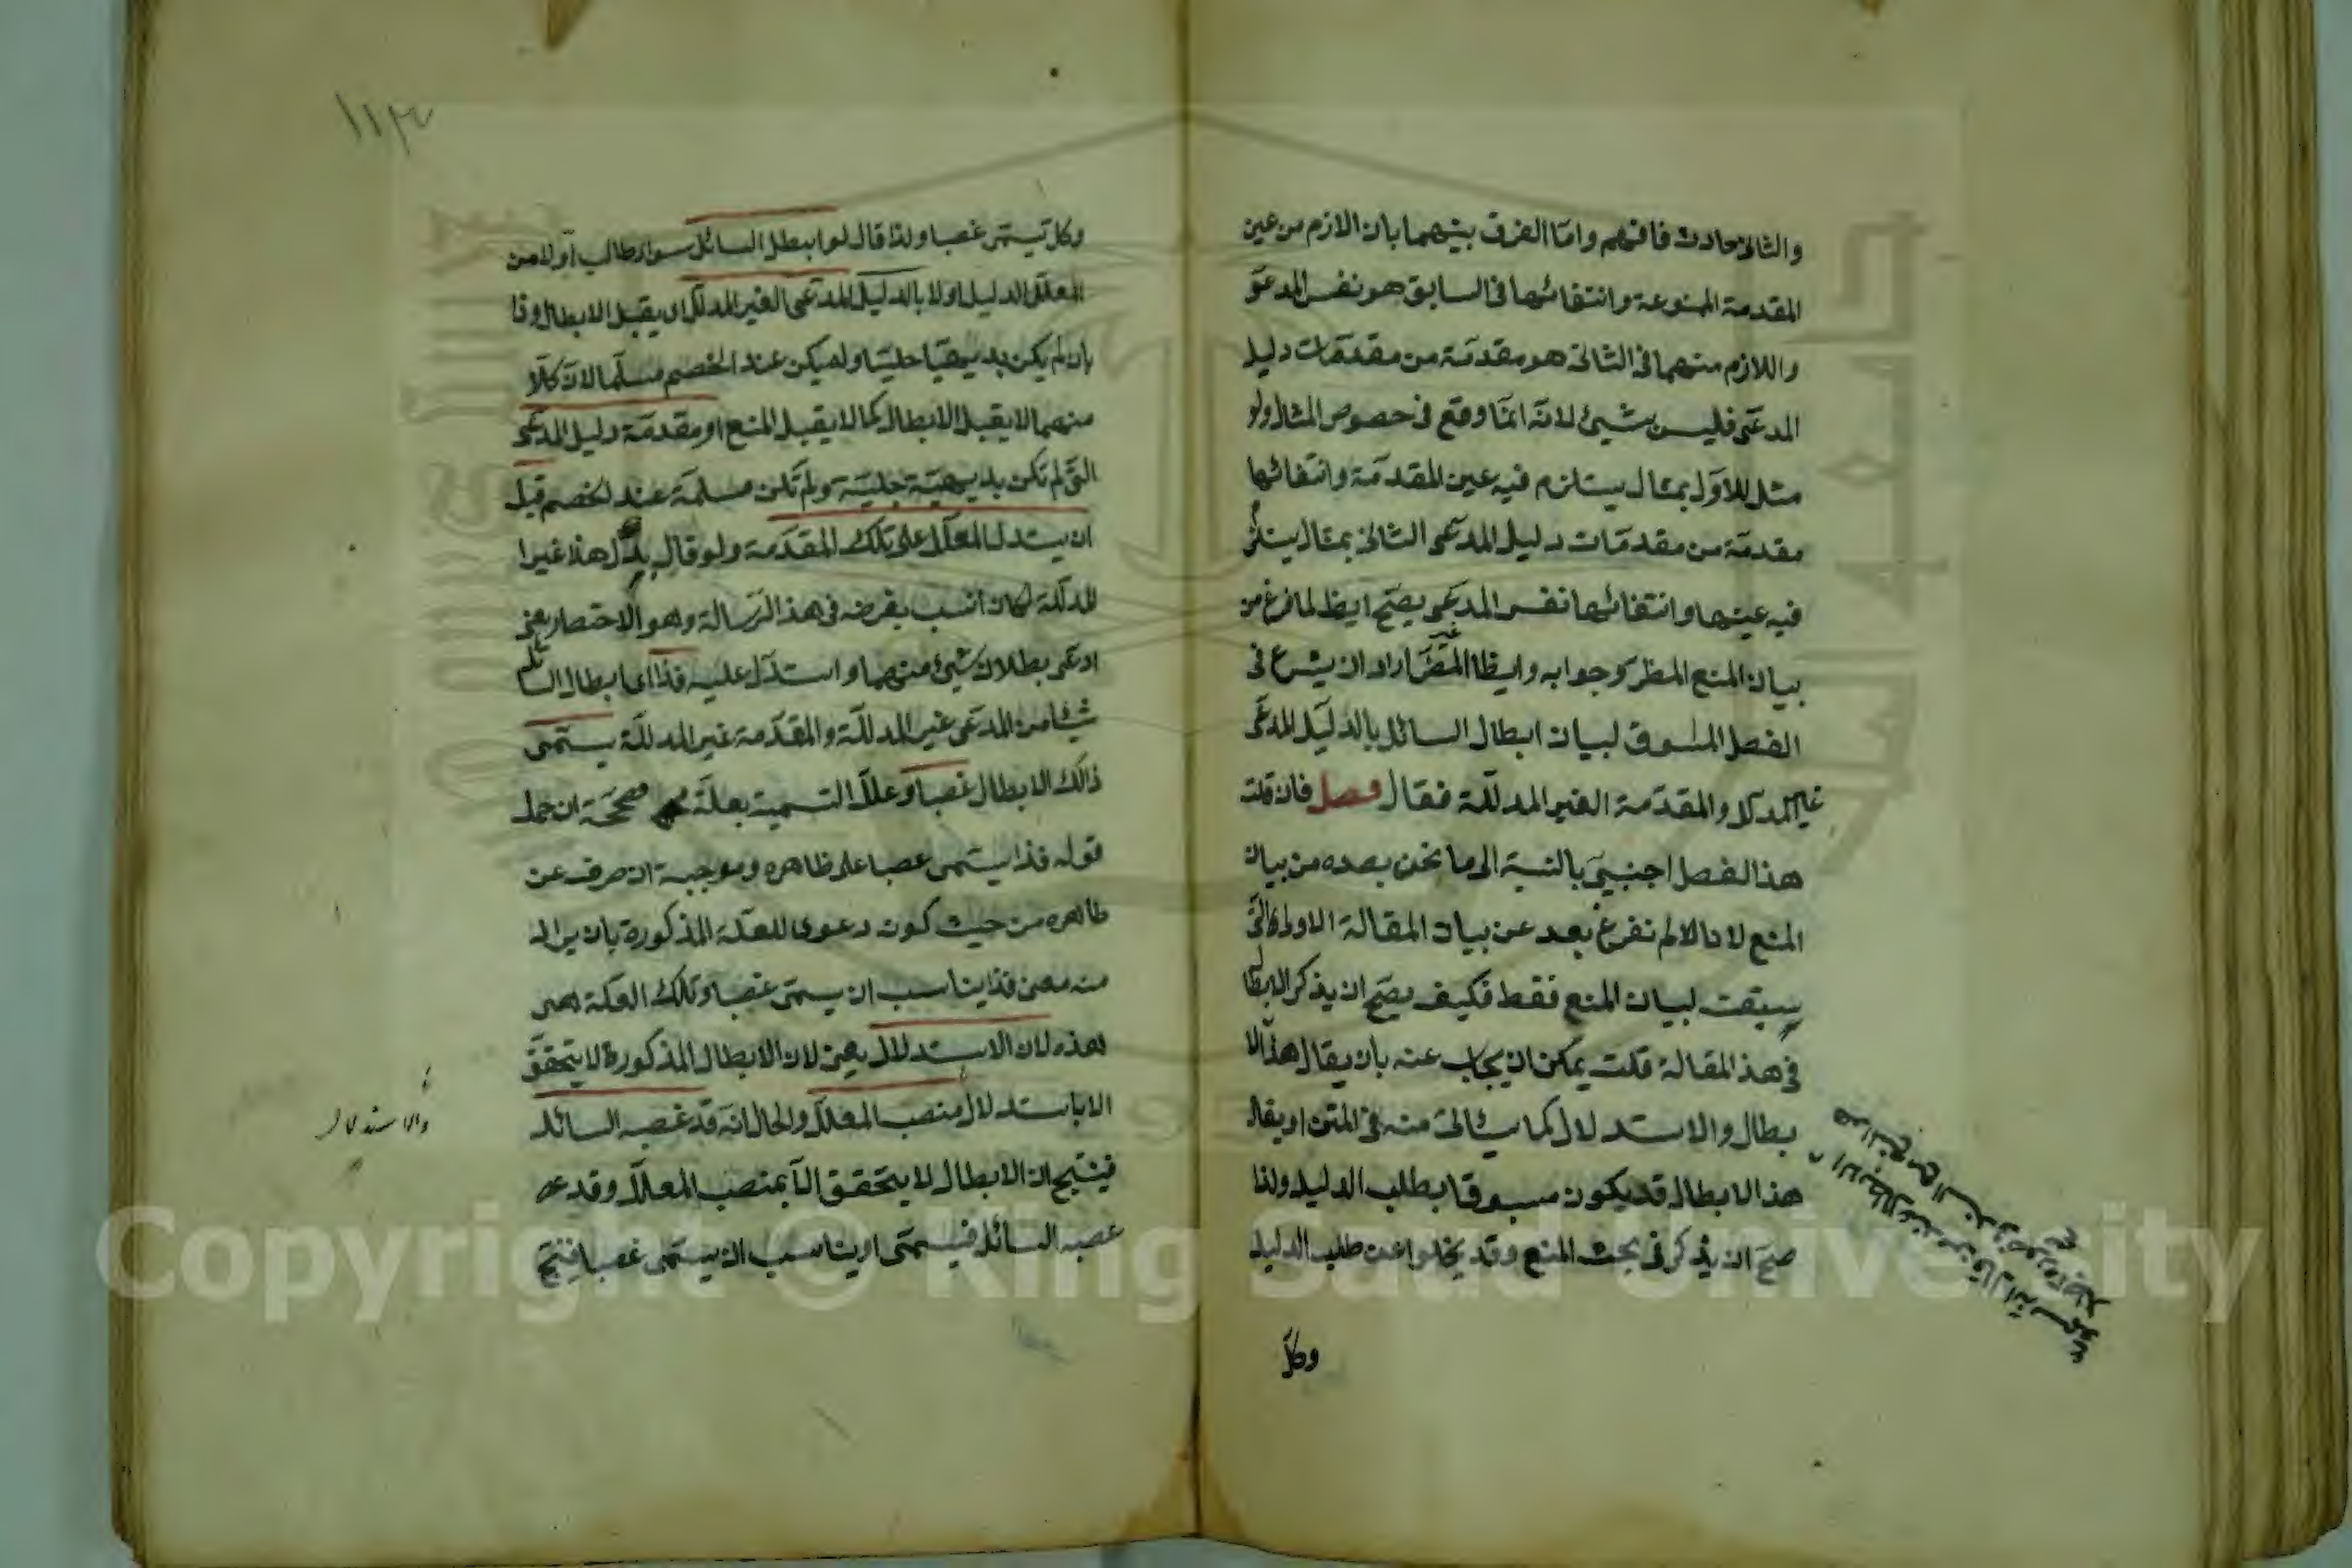 والثانى حادث فافهم واما الفرق بينهما بان الازم من عين
المقدمة الممنوعة وانتفائها فى السابق هو نفس المدعى
واللازم منهما فى الثانى هو مقدمة من مقدمات دليل
المدعى فليس بشيئ لانه انما وقع فى خصوص المثال ولو
مثل للاول بمثال يستلزم فيه عين المقدمة وانتفائها
مقدمة من مقدمات دليل المدعى الثانى بمثال يستلزم
فيه عينها وانتفائها نفس المدعى يصح ايضا لما فرغ من
بيان المنع المظر وجوابه وايضا غير المضر اراد ان يشرع فى
الفصل المسوق لبيان ابطال السائل بالدليل المدعى
غير المدلل والمقدمة الغير المدللة فقال فصل فان قلت
هذا الفصل اجنبى بالنسبة الى ما نحن بصده من بيان
المنع لانا لم نفرغ بعد عن بيان المقالة الاولى التى
سبقت لبيان المنع فقط فكيف يصح ان يذكر الابطا
فى هذا المقالة قلت يمكن ان يجاب عنه بان يقال هذا الا
بطال والاستدلال كما سيأتى منه فى المتن او يقال
هذا الابطال قد يكون مسبوقا بطلب الدليل ولذا
صح ان يذكر فى بحث المنع وقد يخلوا عن طلب الدليل
وكل
١١٣
وكل يسمى غصبا ولذا قال لو ابطل السائل سواء طالب اولا من
المعلل الدليل اولا بالدليل المدعى الغير المدلل ان يقبل الابطال وذا
بان لم يكن بديهيا جليا ولم يكن عند الخصم مسلما لان كلا
منهما لا يقبل الابطال كما لا يقبل المنع او مقدمة دليل المدعى
التى لم تكن بديهية جلية ولم تكن مسلمة عند الخصم قبل
ان يستدل المعلل على تلك المقدمة ولو قال بدل هذا غير ا
لمدللة لكان انسب بغرضه فى هذا الرسالة وهو الاختصار يعنى
ادعى بطلان شيئ منهما واستدل عليه فذا اى ابطال السائل
شيئا من المدعى غير المدللة والمقدمة غير المدللة يسمى
ذالك الابطال غصبا وعلل التسمية بعلة مصححة ان حمل
قوله فذا يسمى غصبا على ظاهره وموجبة ان صرف عن
ظاهره من حيث كون دعوى للعلة المذكورة بان يراد
منه معنى فذا يناسب ان يسمى غصبا وتلك العلة هى
هذه لان الاستدلال يعنى لان الابطال المذكورة لا يتحقق
الا باستدلال منصب المعلل والحال انه قد غصبه السائل
فينتج ان الابطال لا يتحقق الا بمنصب المعلل وقد
غصبه السائل فيسمى او يناسب ان يسمى غصبا فينتج
والاستدلال